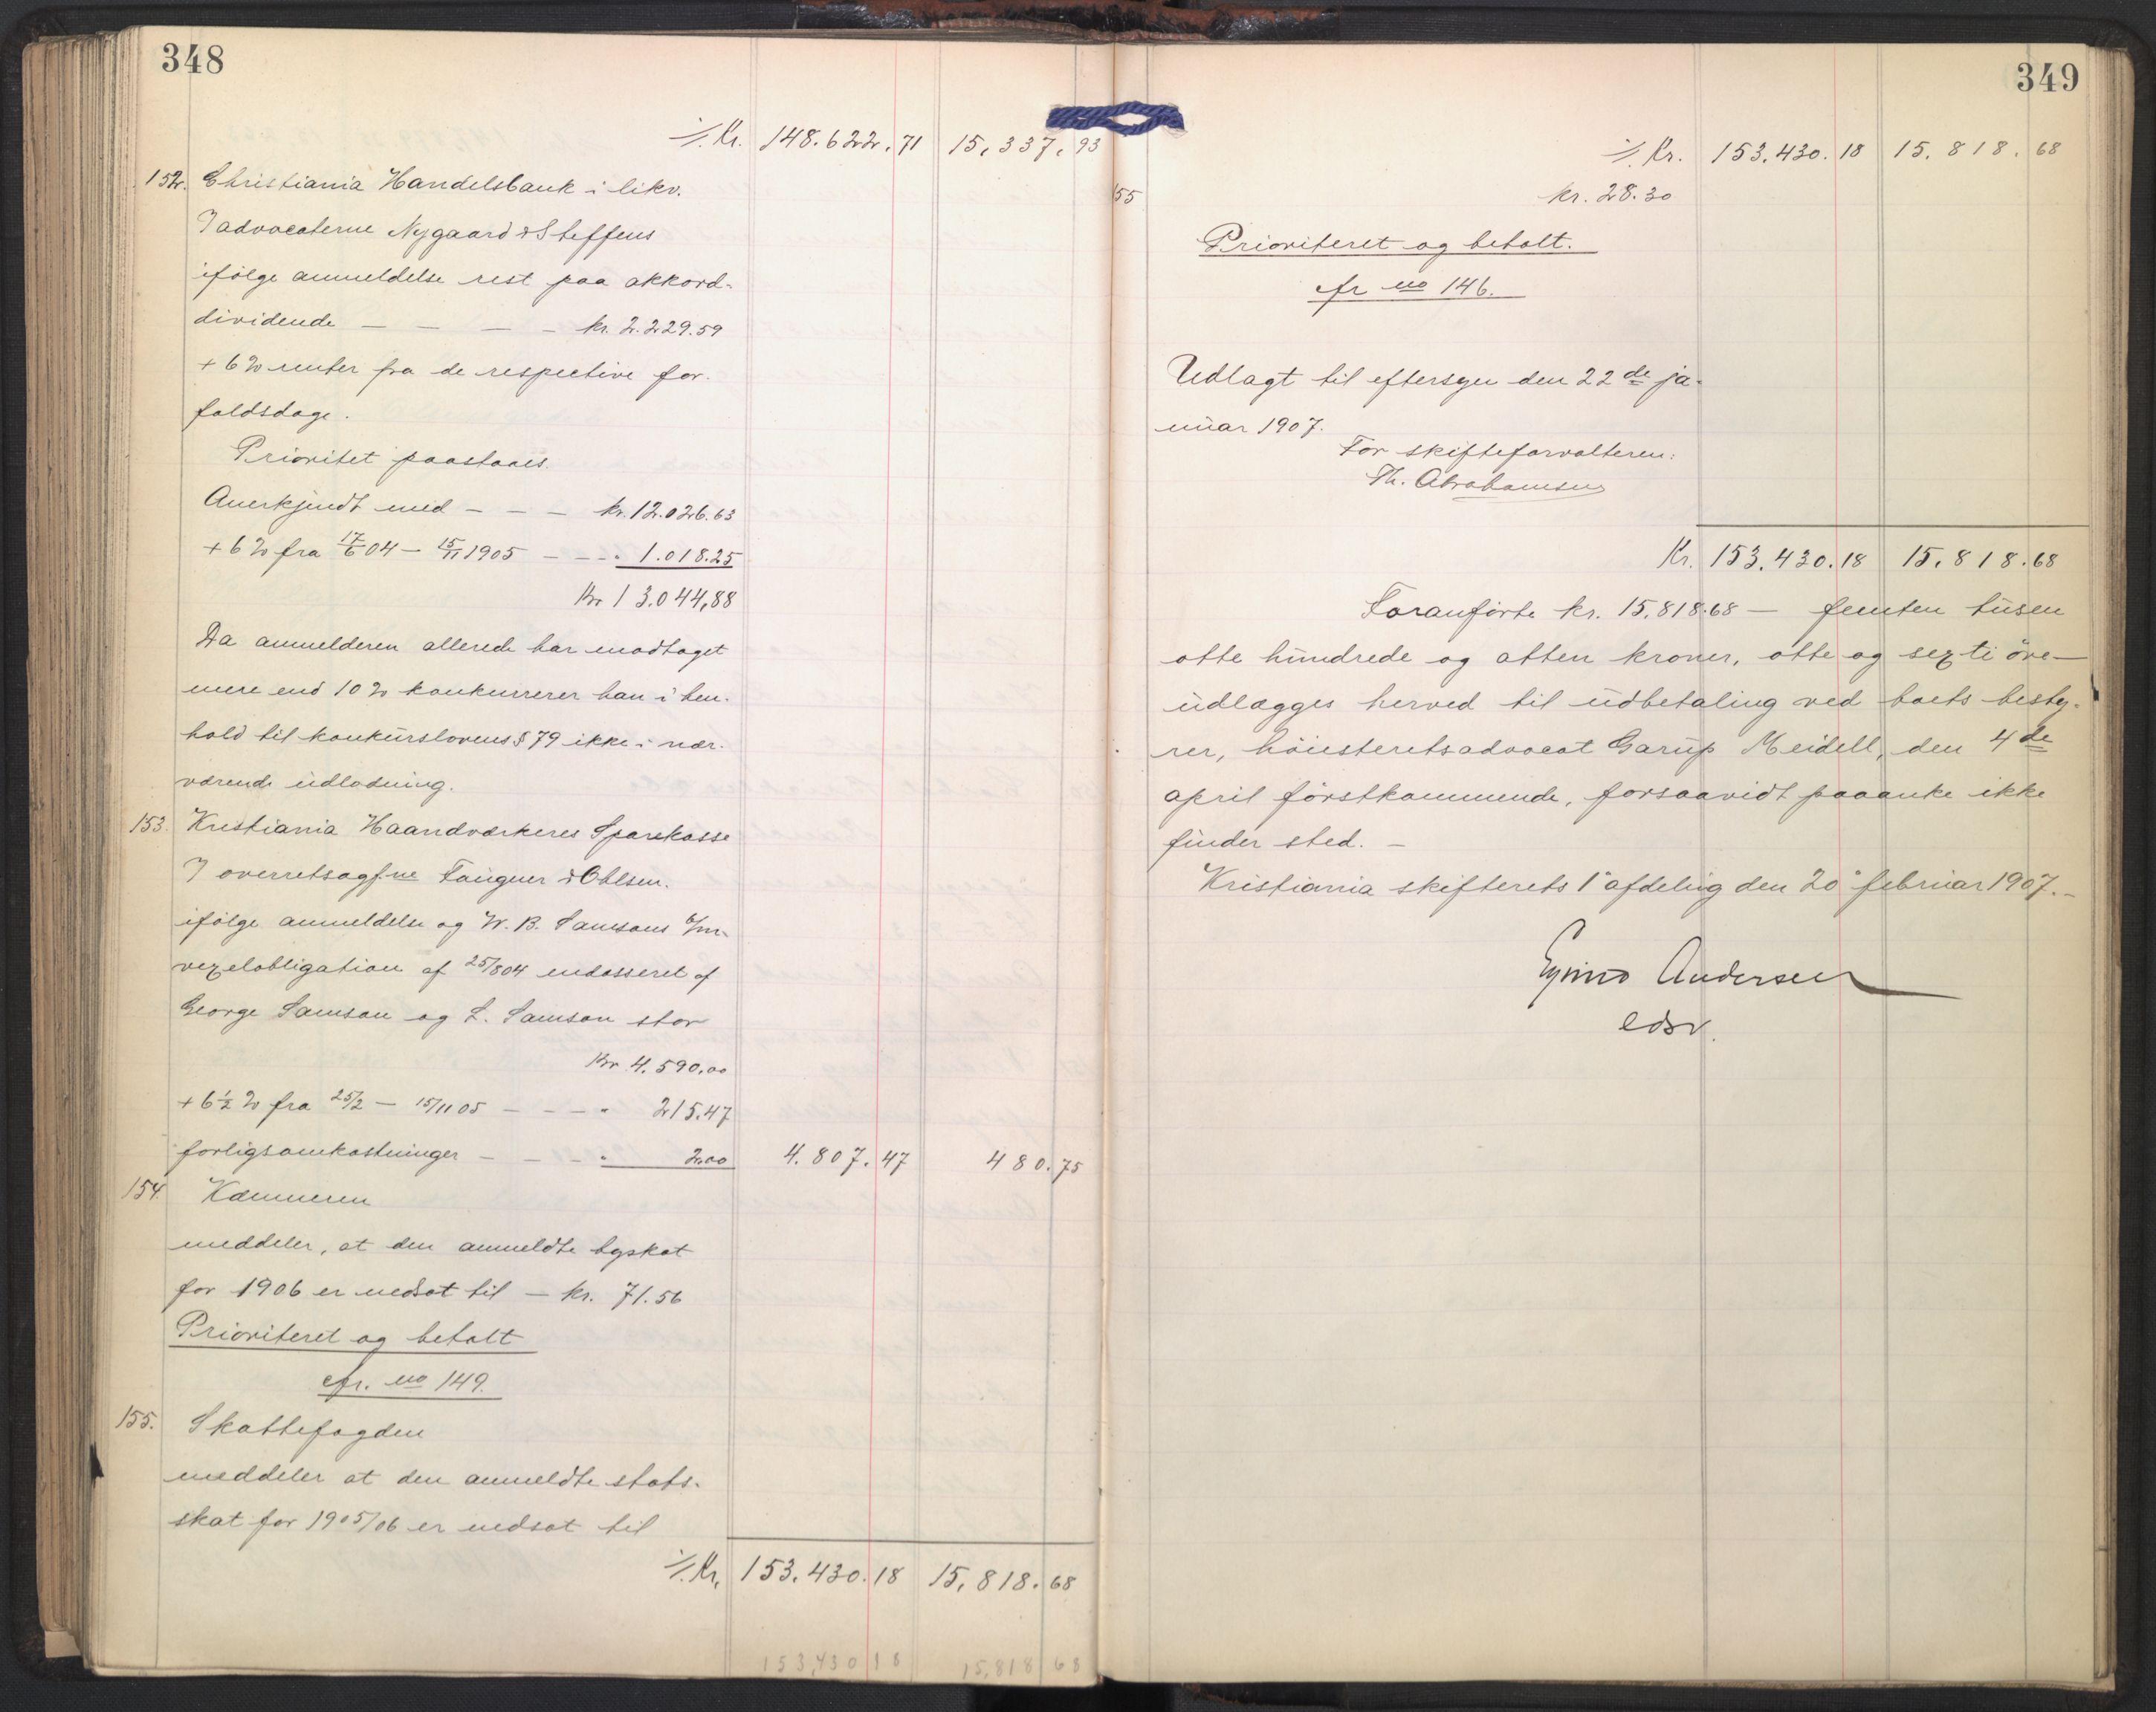 348
·/. Kr. 148.622.71 15.337.93
152. Christiania Handelsbank i likv.
/ advocaterne Nygaard & Steffens
ifølge anmeldelse rest paa akkord-
dividende — — — — kr. 2.229.59
+ 6 % renter fra de respective for-
faldsdage.
Prioritet paastaaes.
Anerkjendt med — — — kr. 12.026.63
+ 6 % fra 17/6 04 — 15/11 1905 — — - „ 1.018.25
Kr 13.044,88
Da anmelderen allerede har modtaget
mere end 10 % konkurrerer han i hen-
hold til konkurslovens § 79 ikke i nær-
værende udlodning.
153. Kristiania Haandværkeres Sparekasse
/ overretssagf.ne Faugner & Ohlsen.
ifølge anmeldelse og W. B. Samsons
vexelobligation af 25/8 04 endosseret af
George Samson og L. Samson stor
Kr 4.590.00
+ 6 1/2 % fra 25/2 — 15/11 05 — — — „ 215.47
forligsomkostninger — — — „ 2.00 4.807.47 480.75
154. Kæmneren
meddeler, at den anmeldte byskat
for 1906 er nedsat til — kr. 71.56
Prioriteret og betalt
cfr. no 149.
155. Skattefogden
meddeler at den anmeldte stats-
skat for 1905/06 er nedsat til
·/. Kr. 153.430.18 15.818.68
153,430 18 15,818 68
349
·/. Kr. 153.430.18 15.818.68
155 kr. 28.30
Prioriteret og betalt.
cfr no 146.
Udlagt til eftersyn den 22de ja-
nuar 1907.
For skifteforvalteren:
Th. Abrahamsen
Kr. 153.430.18 15.818.68
Foranførte kr. 15.818.68 — femten tusen
otte hundrede og atten kroner, otte og sexti øre —
udlægges herved til udbetaling ved boets besty-
rer, høiesteretsadvocat Garup Meidell, den 4de
april førstkommende, forsaavidt paaanke ikke
finder sted. —
Kristiania skifterets 1' afdeling den 20' februar 1907. —
Eyvind Andersen
edsv.